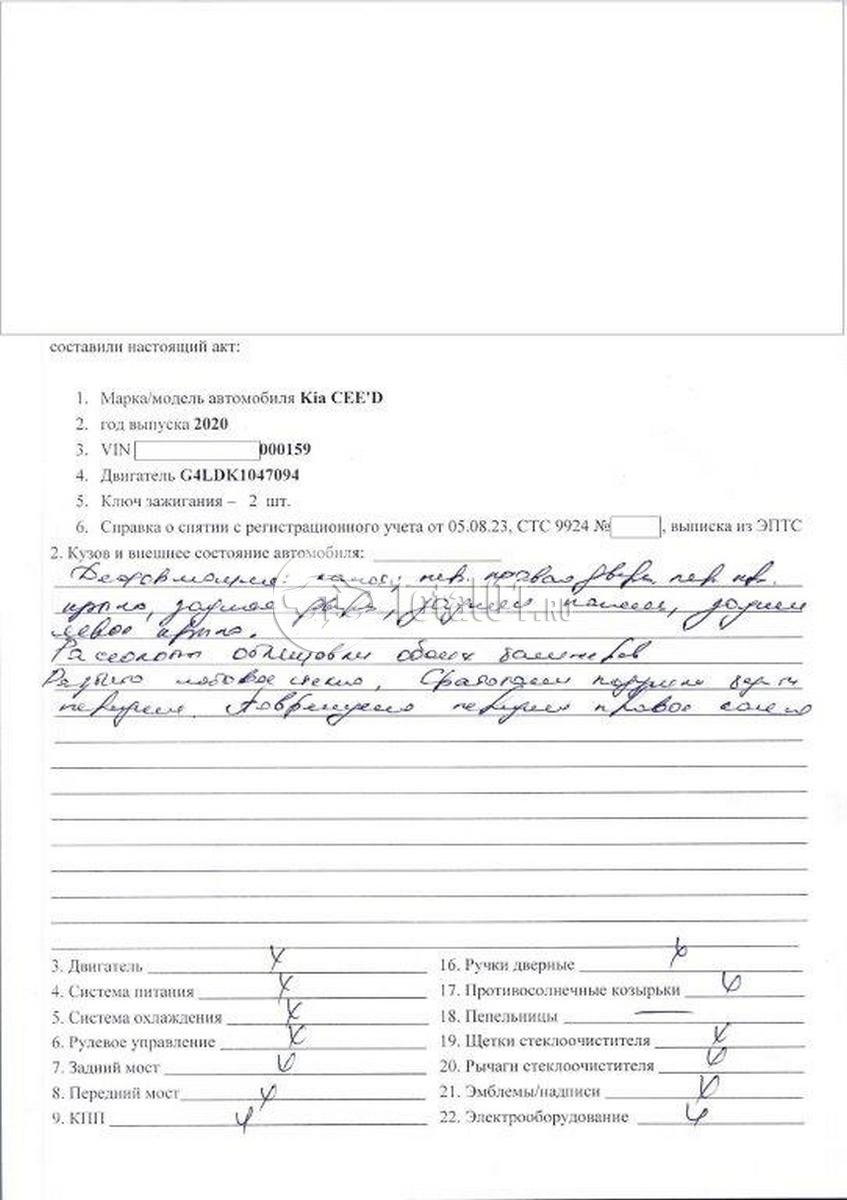 составили настоящий акт:
1. Марка/модель автомобиля Kia CEE'D
2. год выпуска 2020
3. VIN 000159
4. Двигатель G4LDK1047094
5. Ключ зажигания – 2 шт.
6. Справка о снятии с регистрационного учета от 05.08.23, СТС 9924 № , выписка из ЭПТС
2. Кузов и внешнее состояние автомобиля:
Деформации: капот, пер. правая дверь, пер. пр.
крыло, задняя дверь, задняя панель, заднее
левое крыло.
Total01.RU
Расколоты облицовки обоих бамперов
Разбито лобовое стекло, Сработали подушки
переднее правое
3. Двигатель
4. Система питания
5. Система охлаждения
6. Рулевое управление
7. Задний мост
8. Передний мост
9. КПП
16. Ручки дверные
17. Противосолнечные козырьки
18. Пепельницы —
19. Щетки стеклоочистителя
20. Рычаги стеклоочистителя
21. Эмблемы/надписи
22. Электрооборудование